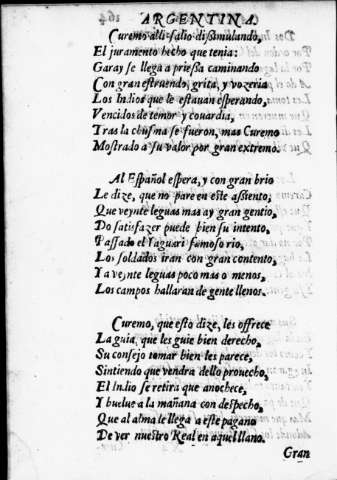 ARGENTINA.
Curemo alli salio dissimulando,
El juramento hecho que tenia:
Garay se llega a priessa caminando
Con gran estruendo, grita, y vozeria
Los Indios que le estauan esperando,
Vencidos de temor y couardia,
Tras la chusma se fueron, mas Curemo
Mostrado a su valor por gran extremo.
Al Español espera, y con gran brio
Le dize, que no pare en este assiento,
Que veynte leguas mas ay gran gentio,
Do satisfazer puede bien su intento,
Passado el Yaguari famoso rio,
Los soldados iran con gran contento,
Ya veynte leguas poco mas o menos,
Los campos hallaran de gente llenos.
Curemo, que esto dize, les offrece
La guia, que les guie bien derecho,
Su consejo tomar bien les parece,
Sintiendo que vendra dello prouecho,
El Indio se retira que anochece,
Y buelue a la mañana con despecho,
Que al alma le llega a este pagano
De ver nuestro Real en aquel llano.
Gran